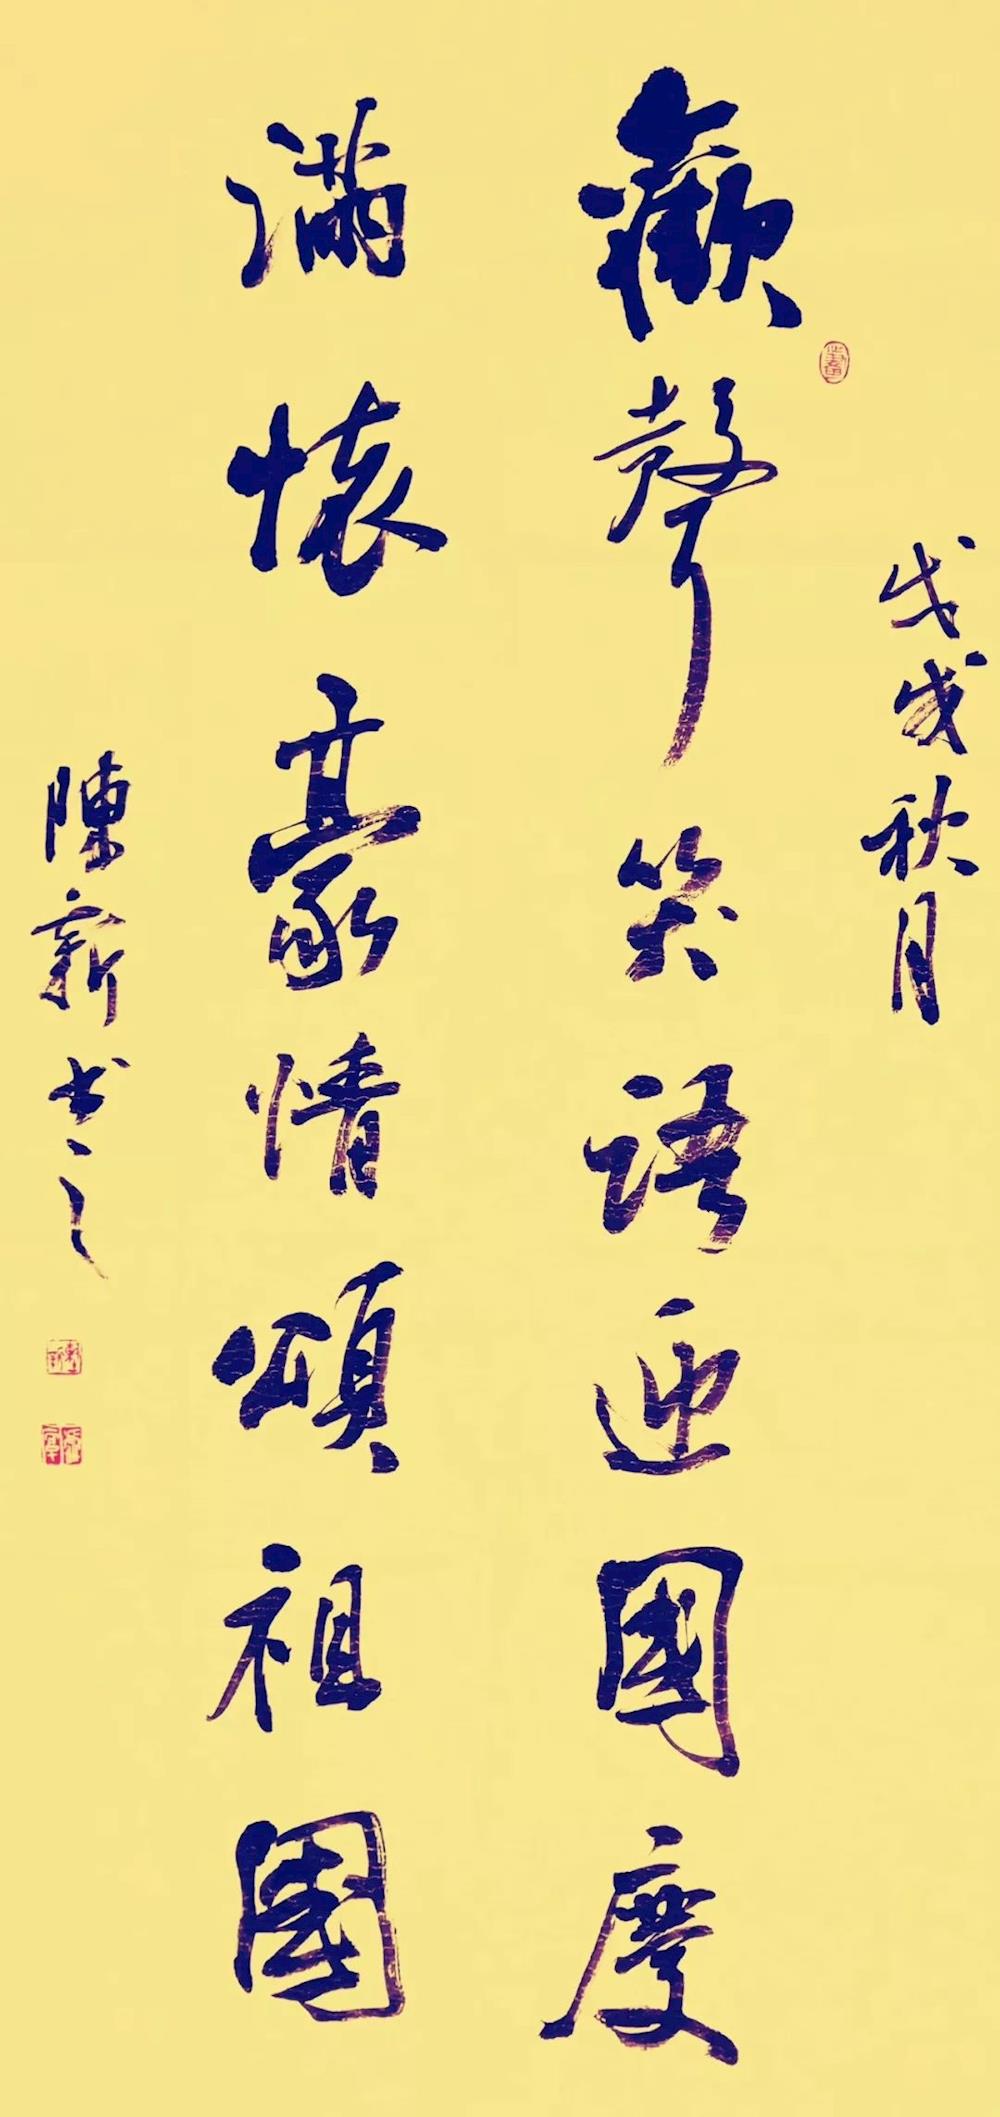 戊戌秋月
歡聲笑語迎國慶
滿懷豪情頌祖國
陳新書之